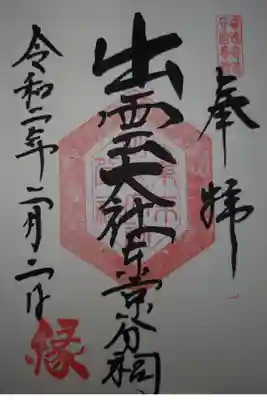 奉拝
出雲大社東京分祠
令和二年二月二日
縁